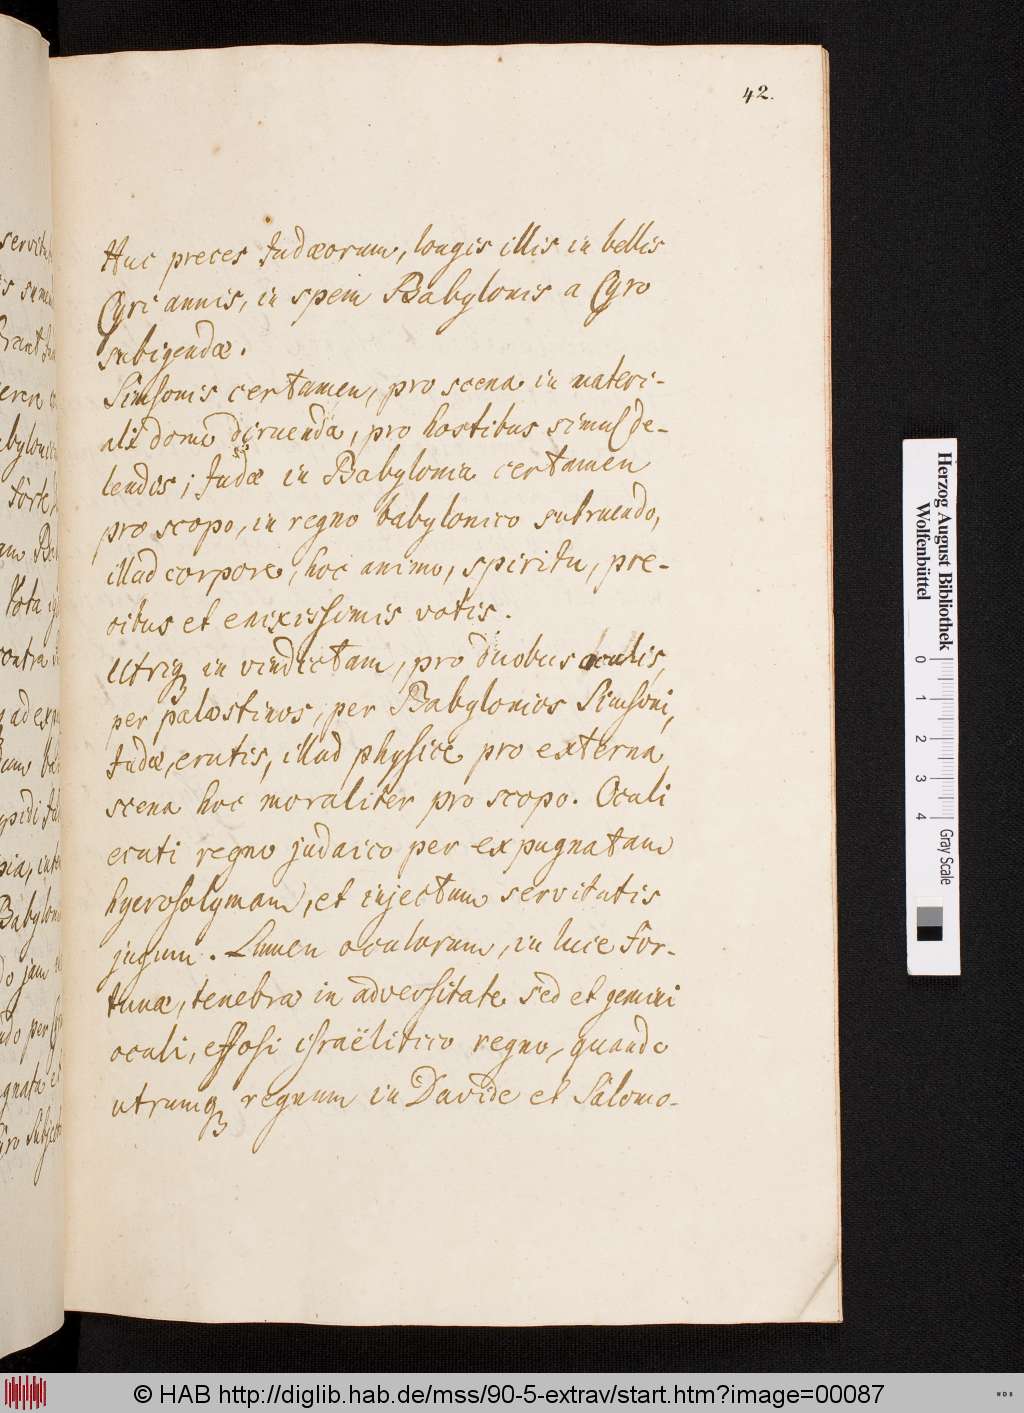 42.
Huc preces Judæorum, longis illis in bellis
Cyri annis, in spem Babylonis a Cyro
subigendæ.
Simsonis certamen, pro scena in materi-
ali domo diruenda, pro hostibus simul de-
lendis; Judæ in Babylonia certamen
pro scopo, in regno babylonico subruendo,
illud corpore, hoc animo, spiritu, pre-
cibus et enixissimis votis.
Utriq in vindictam, pro duobus oculis,
per palæstinos, per Babylonios Simsoni,
Judæ, erutis, illud physice pro externa
scena hoc moraliter pro scopo. Oculi
ecuti regno judaico per expugnatam
hyerosolymam, et injectum servitutis
jugum. Lumen oculorum, in luce for-
tunæ, tenebræ in adversitate sed et gemini
oculi, effosi israëlitico regno, quando
utrumq regnum in Davide et Salomo-
Herzog August Bibliothek
Wolfenbüttel
0 1 2 3 4
Gray Scale
© HAB http://diglib.hab.de/mss/90-5-extrav/start.htm?image=00087